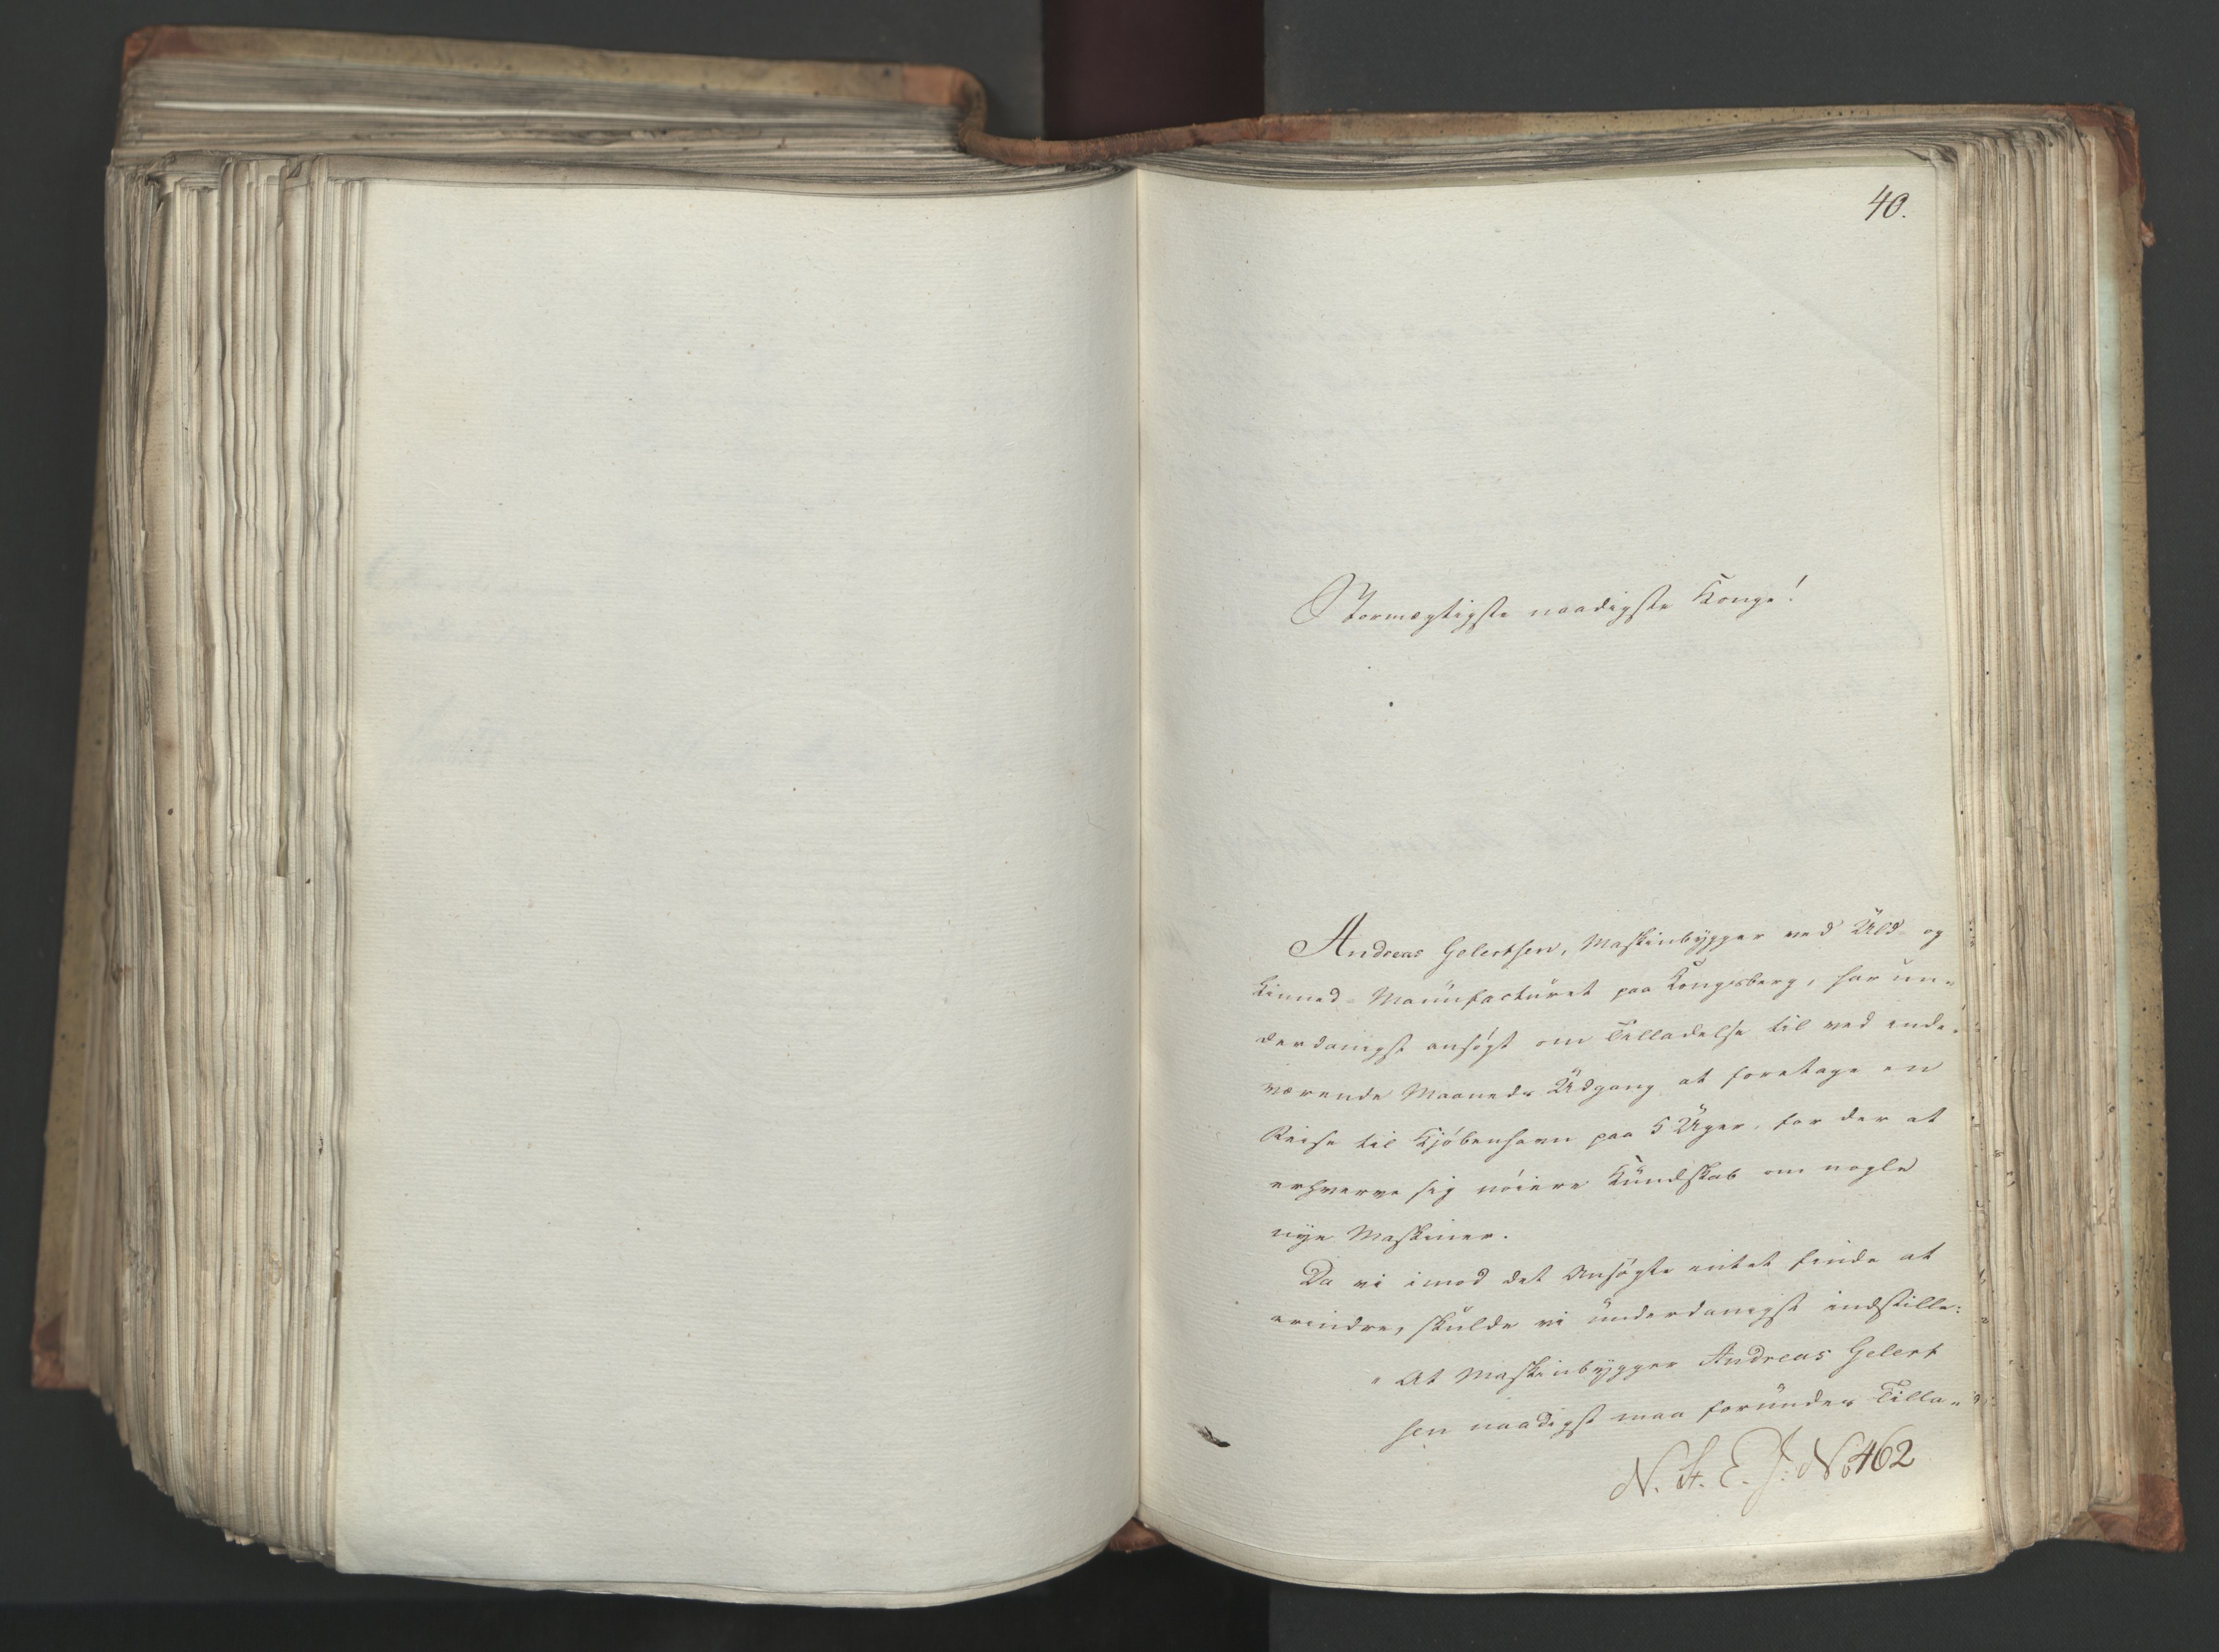 40.
Stormægtigste naadigste Konge!
Andreas Gelertsen, Maskinbygger ved Uld- og
Linned-Manufacturet paa Kongsberg, har un-
derdanigst ansøgt om Tilladelse til ved inde-
værende Maaneds Udgang at foretage en
Reise til Kjøbenhavn paa 5 Uger, for der at
erhverve sig nøiere Kundskab om nogle
nye Maskiner.
Da vi imod det Ansøgte intet finde at
erindre, skulde vi underdanigst indstille:
"At Maskinbygger Andreas Gelert
sen naadigst maa forundes Tilla-
N. A. E. J: No 462